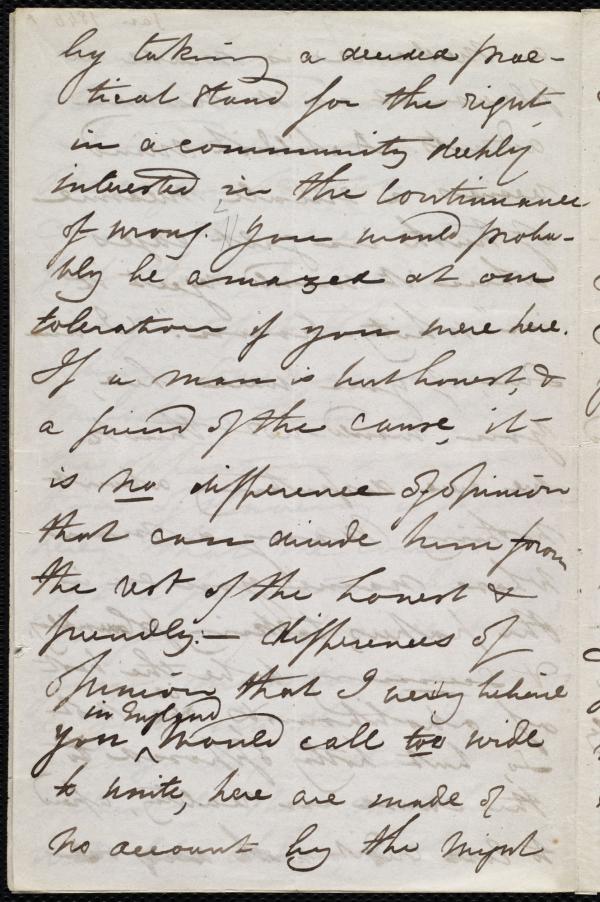 by taking a decided prac-
tical stand for the right
in a community deeply
interested in the continuance
of wrong. You would proba-
bly be amazed at our
toleration if you were here.
If a man is but honest, &
a friend of the cause, it
is no difference of opinion
that can divide him from
the rest of the honest &
friendly:— differences of
opinion that I verily believe
in England
you ^ would call too wide
to unite, here are made of
no account by the might